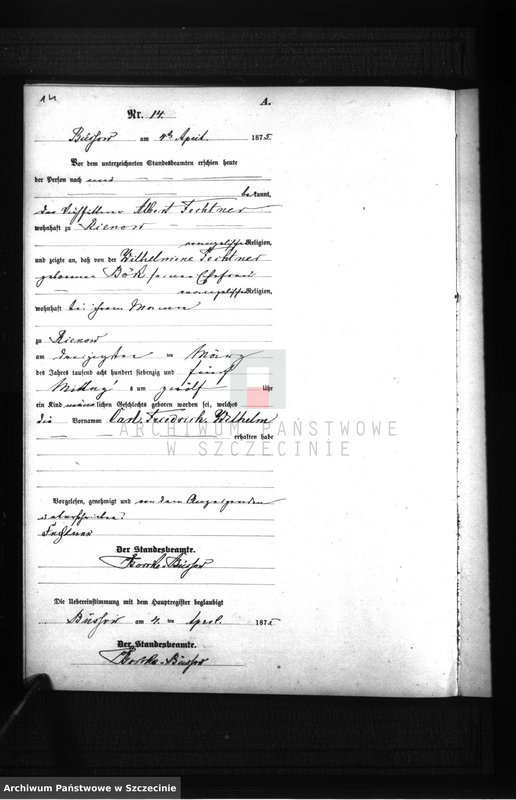 14
A.
Nr. 14.
Büssow am 4ten April 1875
Vor dem unterzeichneten Standesbeamten erschien heute
der Person nach und
bekannt,
der Albert Fechtner
wohnhaft zu Rienow
evangelischer Religion,
und zeigte an, daß von der Wilhelmiene Fechtner
geborenen Bök seiner Ehefrau
evangelischer Religion,
wohnhaft bei ihrem Manne
zu Rienow
am dreizigsten März
des Jahres tausend acht hundert siebenzig und fünf
Mittags um zwölf Uhr
ein Kind männlichen Geschlechts geboren worden sei, welches
die Vornamen Carl, Friedrich, Wilhelm
erhalten habe
ARCHIWUM PAŃSTWOWE
W SZCZECINIE
Vorgelesen, genehmigt und von dem Anzeigenden
unterschrieben:
Fechtner
Der Standesbeamte.
Borcke-Büssow
Die Uebereinstimmung mit dem Hauptregister beglaubigt
Büssow am 4. ten April 1875
Der Standesbeamte.
Borcke-Büssow
Archiwum Państwowe w Szczecinie